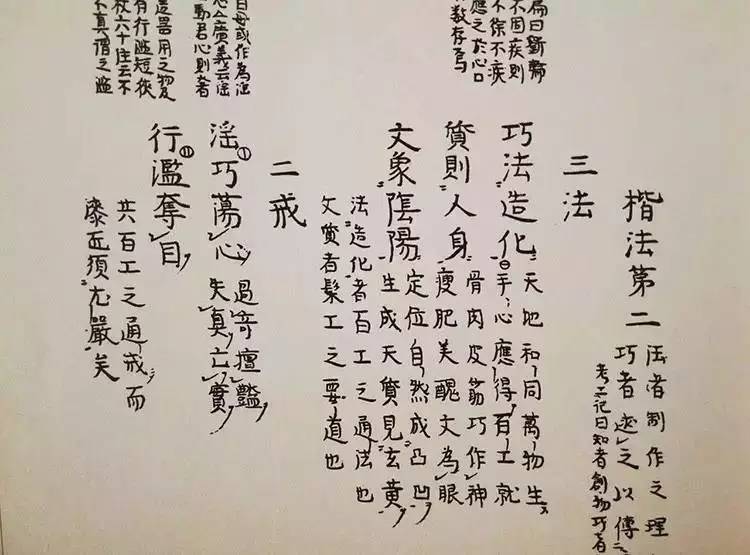 為曰斲輪
不固疾則
不徐不疾
應之於心口
數存焉
曰毋或作為淫
廣義云淫
動君心則奢
器用之物
有行濫短狹
杖六十注云不
不真謂之濫
楷法第二
法者制作之理
巧者述之以傳之
考工記曰知者創物巧者
三法
巧法造化
天地和同萬物生
手心應得百工就
質則人身
骨肉皮筋巧作神
瘦肥美醜文為眼
文象陰陽
定位自然成凸凹
生成天質見玄黃
法造化者百工之通法也
文質者髹工之要道也
二戒
淫①巧蕩心
過奇擅豔
失真亡實
行⑪濫奪目
共百工之通戒而
髹匠須尤嚴矣